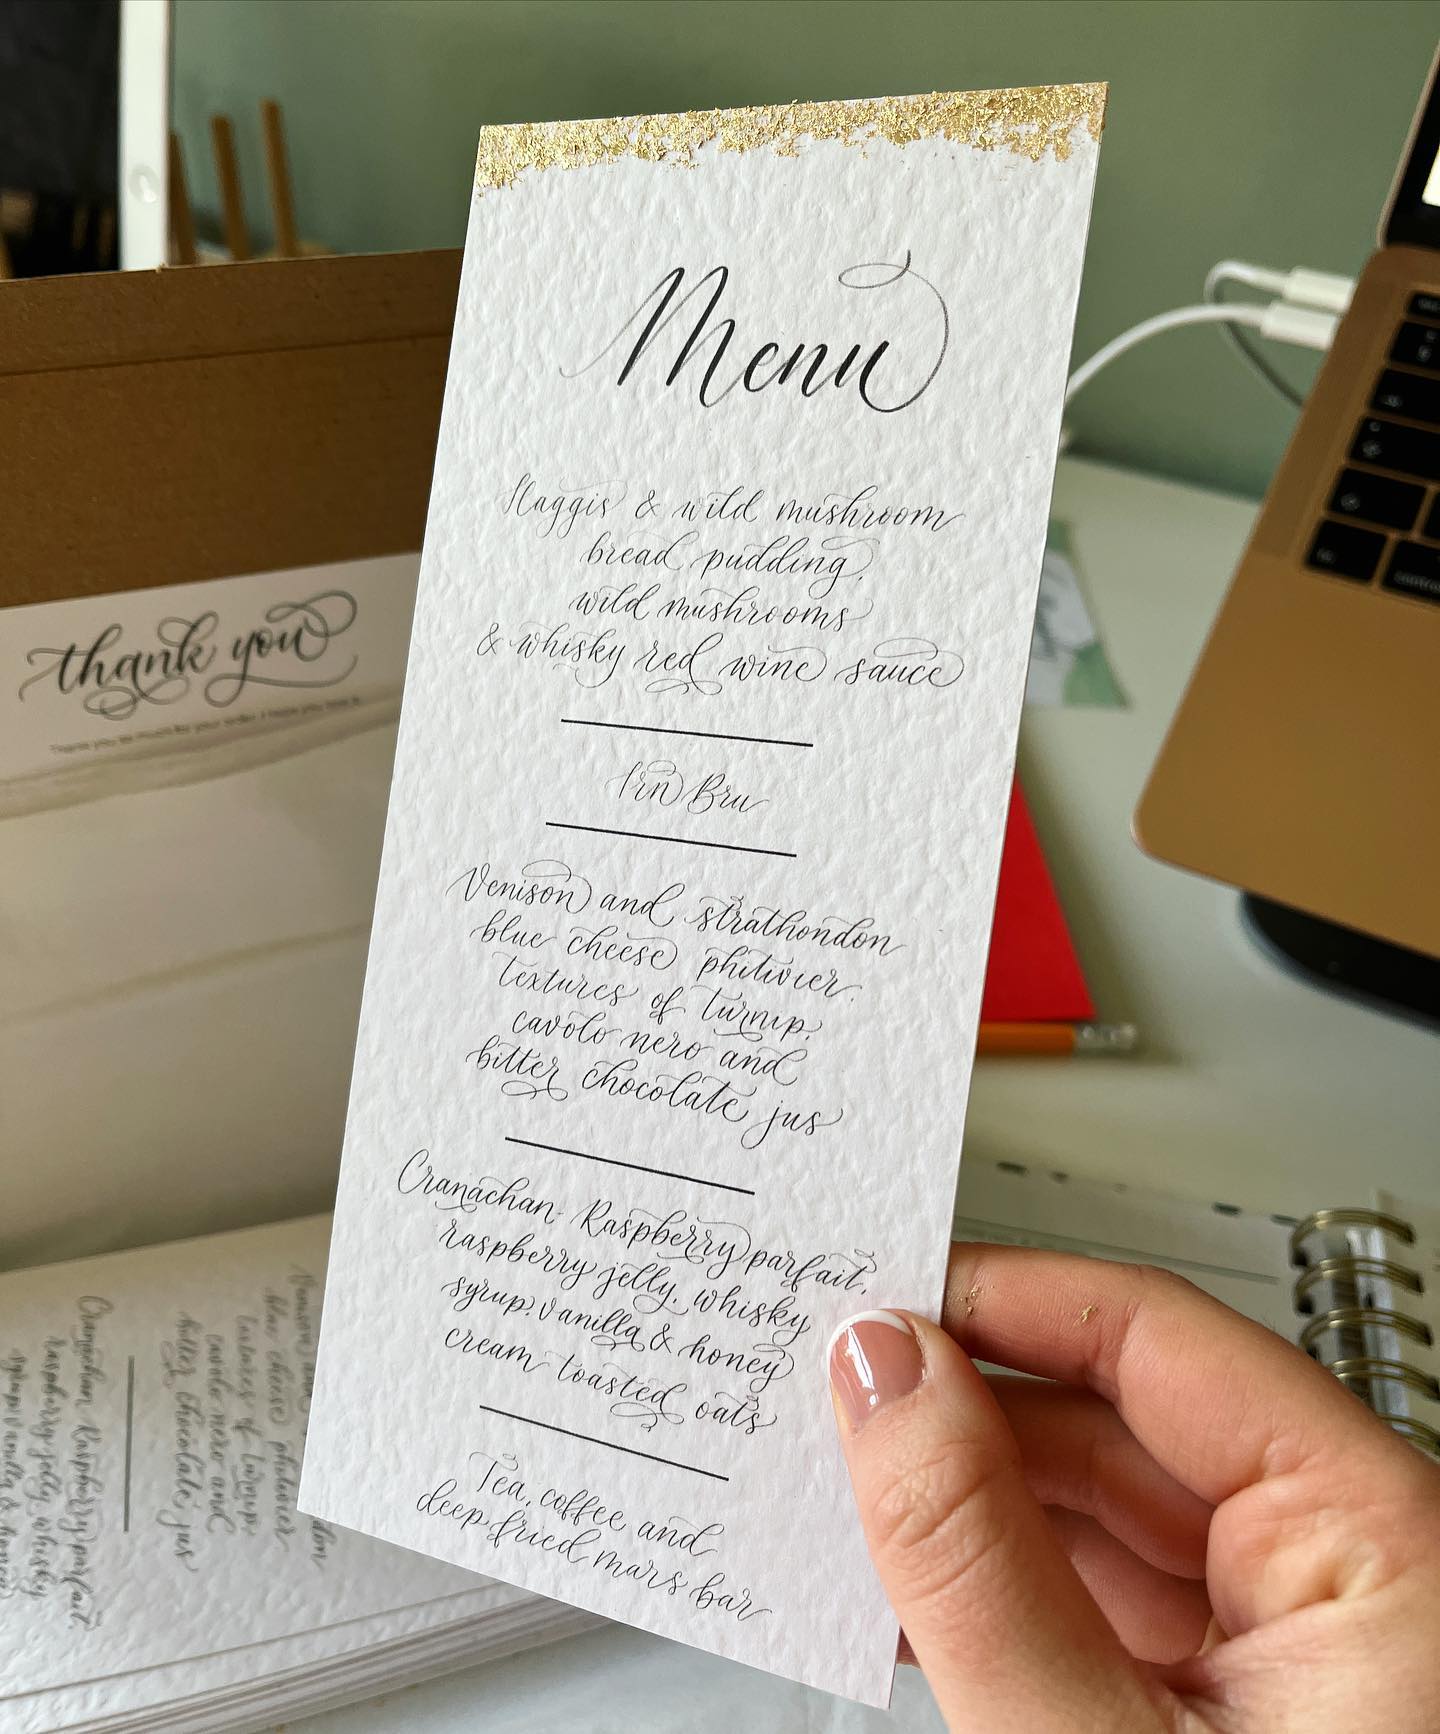 Menu
Haggis & wild mushroom
bread pudding,
wild mushrooms
& whisky red wine sauce
Irn Bru
Venison and strathondon
blue cheese phitivier,
textures of turnip,
cavolo nero and
bitter chocolate jus
Cranachan: Raspberry parfait,
raspberry jelly, whisky
syrup, vanilla & honey
cream toasted oats
Tea, coffee and
deep fried mars bar
thank you
Thank you so much for your order, I hope you love it
don
blue cheese phitivier,
textures of turnip,
cavolo nero and
bitter chocolate jus
Cranachan: Raspberry parfait,
raspberry jelly, whisky
syrup, vanilla & honey
control